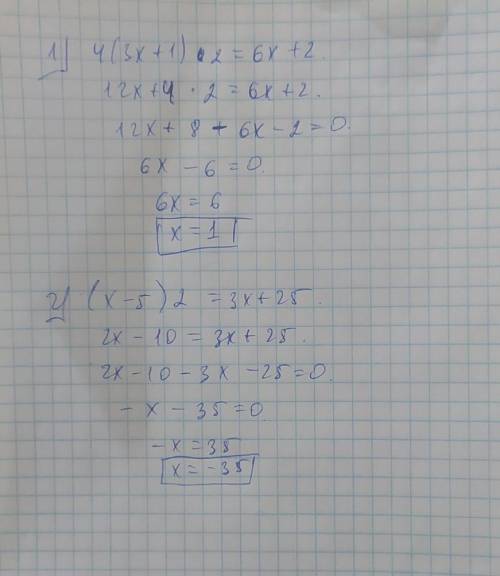 1) 4(3x+1) · 2 = 6x+2.
12x+4 · 2 = 6x+2.
12x + 8 - 6x - 2 = 0.
6x - 6 = 0.
6x = 6
x = 1
2) (x-5) 2 = 3x+25.
2x - 10 = 3x+25.
2x - 10 - 3x - 25 = 0.
- x - 35 = 0
- x = 35
x = -35